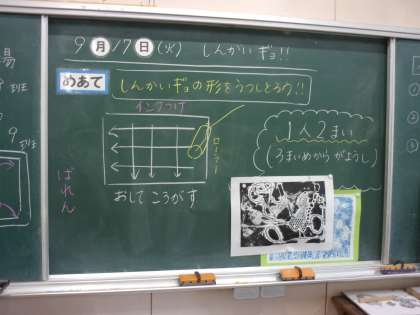 9月17日(火) しんかいギョ!!
めあて しんかいギョの形をうつしとろウ!!
インクつけ
ローラー
おして ころがす
1人2まい
(2まいめからがようし)
ばれん
場
8班
9班